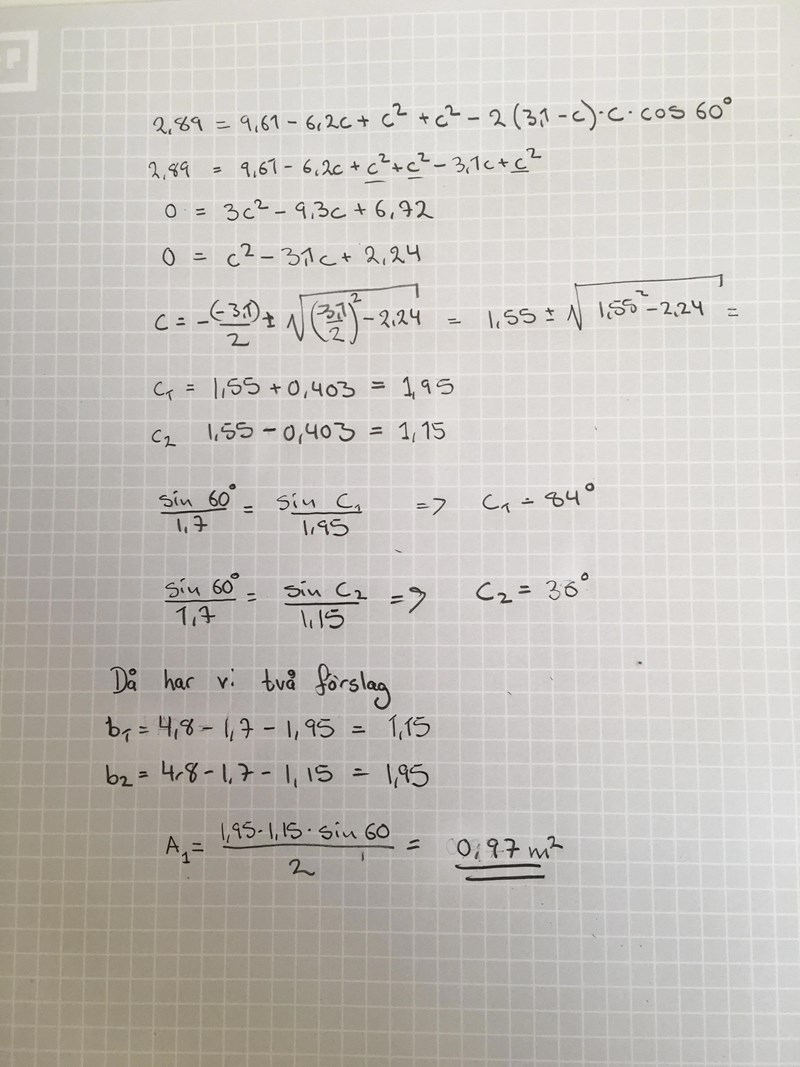 2,89 = 9,61 - 6,2c + c² + c² - 2 (3,1 - c) · c · cos 60°
2,89 = 9,61 - 6,2c + c² + c² - 3,1c + c²
0 = 3c² - 9,3c + 6,72
0 = c² - 3,1c + 2,24
c = -(-3,1)/2 ± √((3,1/2)² - 2,24) = 1,55 ± √(1,55² - 2,24) =
c₁ = 1,55 + 0,403 = 1,95
c₂ 1,55 - 0,403 = 1,15
sin 60°/1,7 = sin C₁/1,95 => C₁ = 84°
sin 60°/1,7 = sin C₂/1,15 => C₂ = 36°
Då har vi två förslag
b₁ = 4,8 - 1,7 - 1,95 = 1,15
b₂ = 4,8 - 1,7 - 1,15 = 1,95
A₁ = 1,95 · 1,15 · sin 60/2 = 0,97 m²